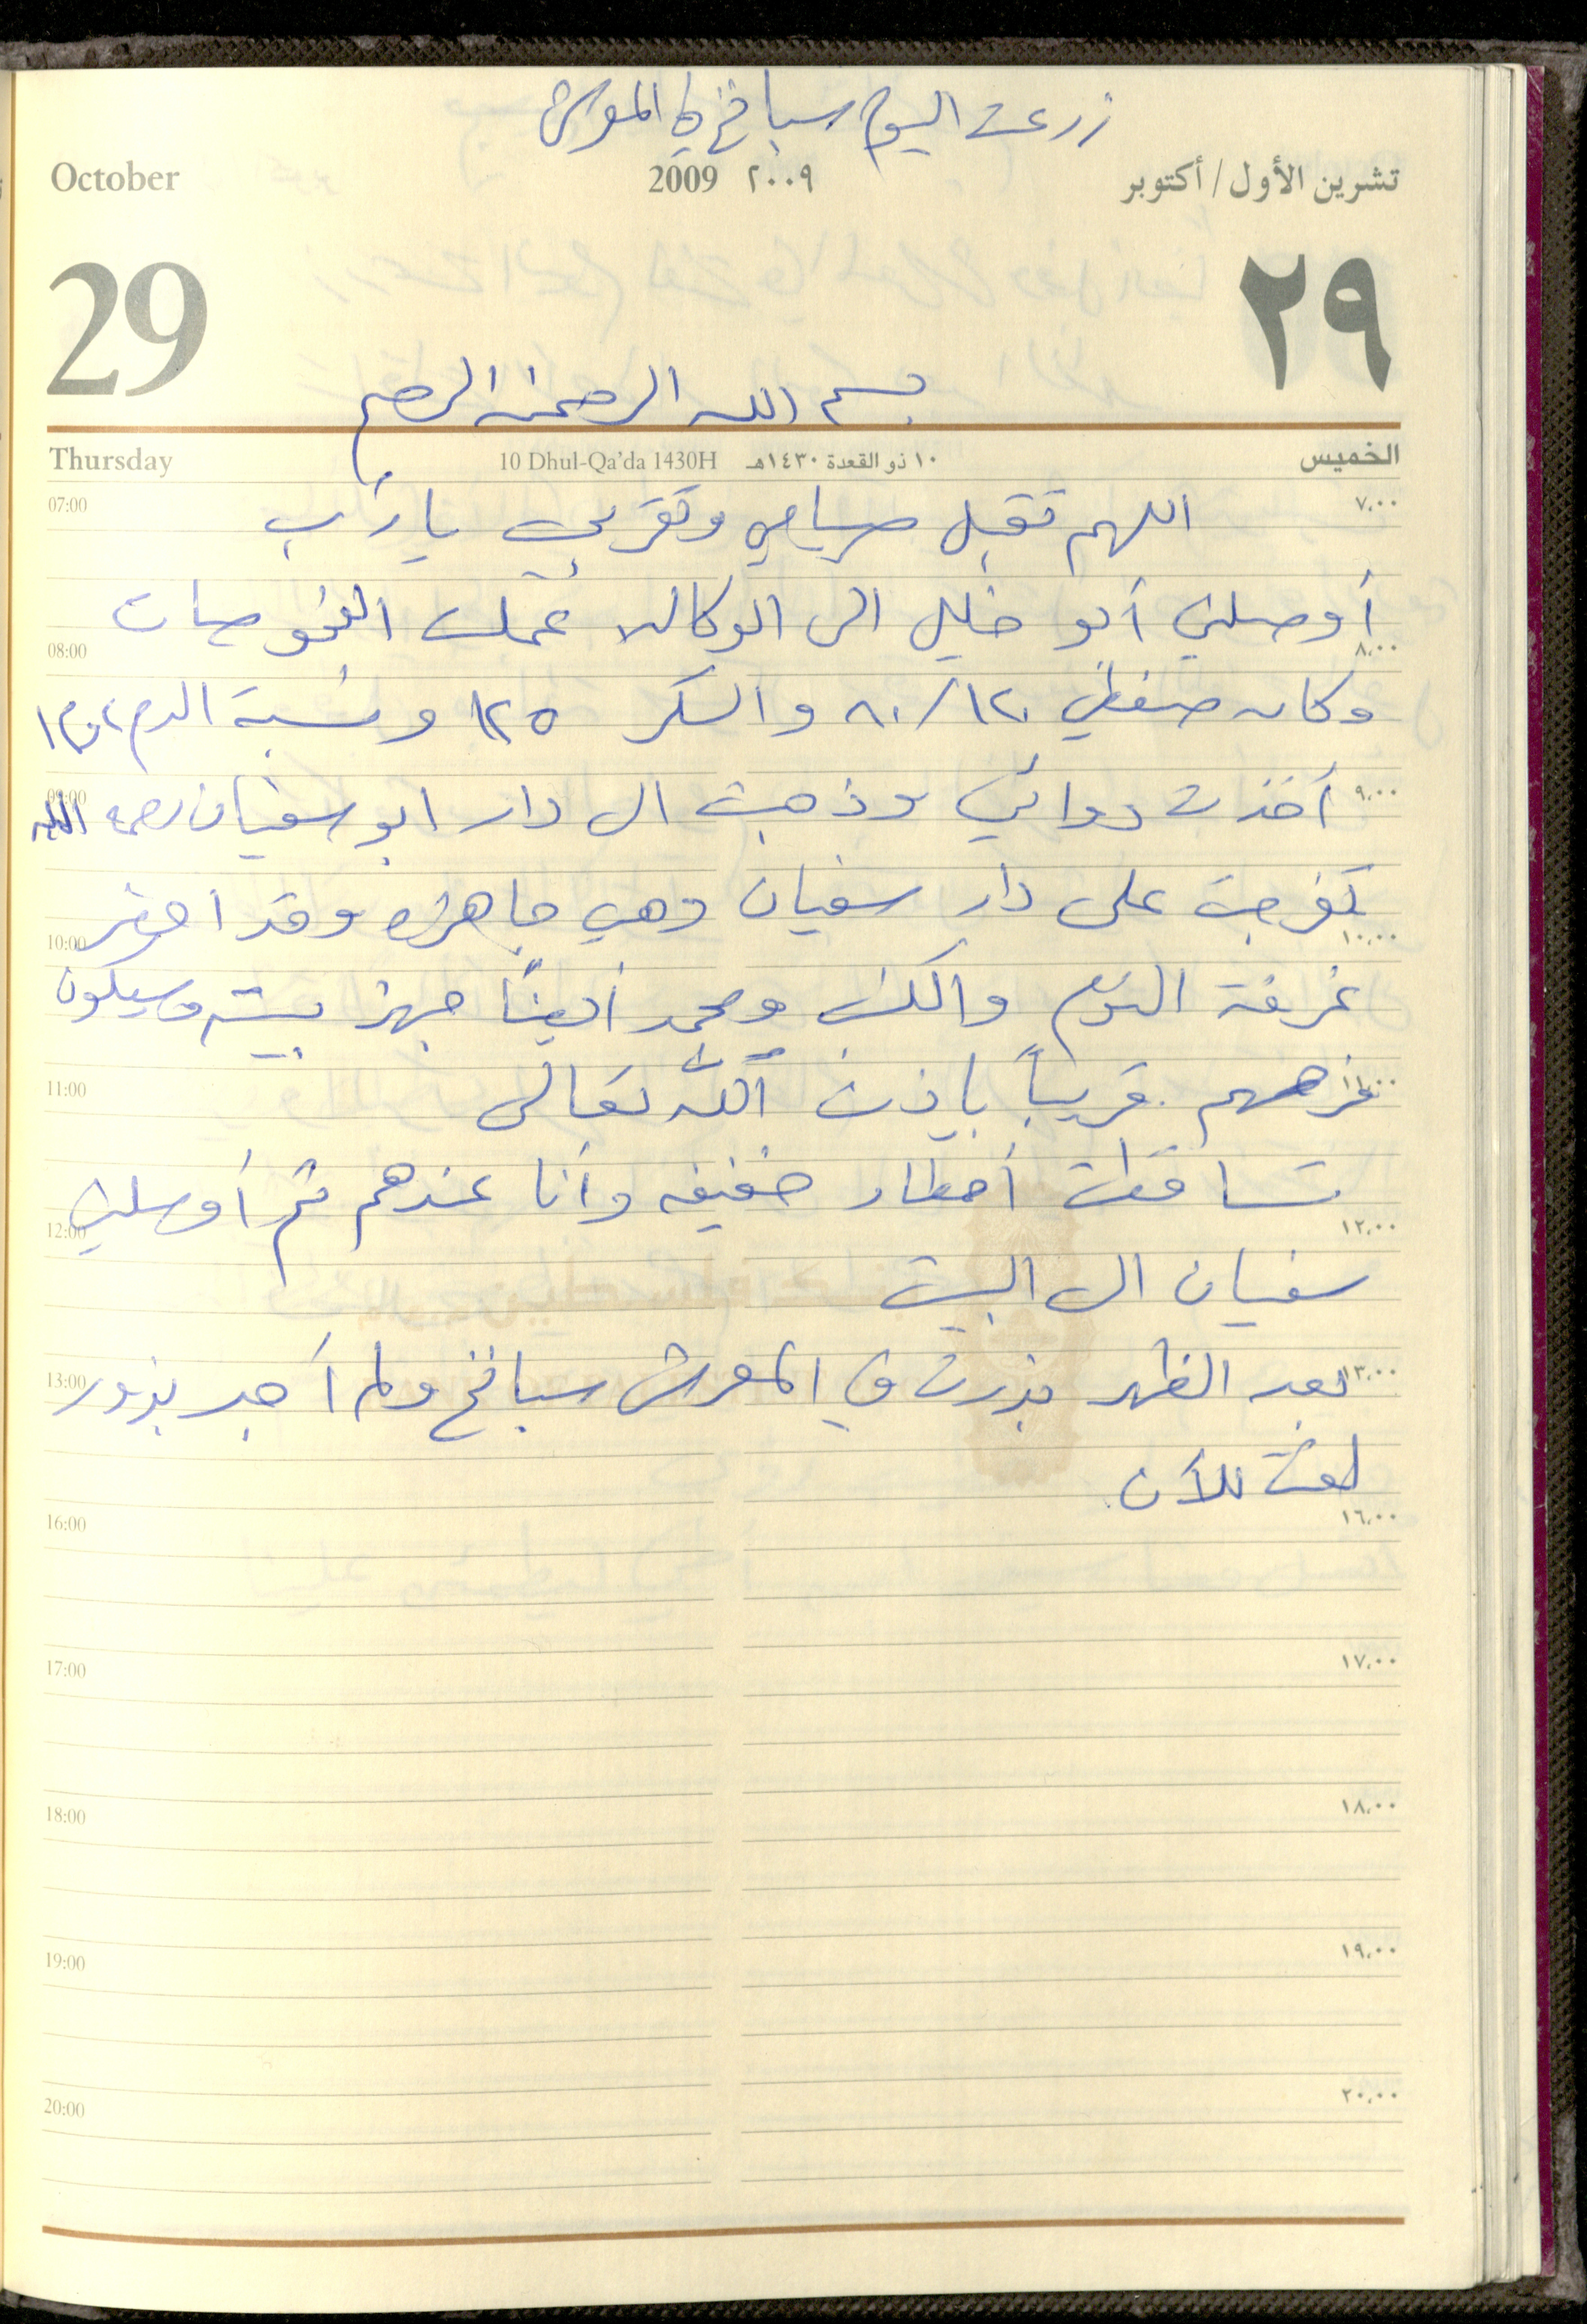 زرعت اليوم سبانخ في المعرش
October 2009 ٢٠٠٩ تشرين الأول / أكتوبر
29 ٢٩
بسم الله الرحمن الرحيم
Thursday 10 Dhul-Qa'da 1430H ١٠ ذو القعدة ١٤٣٠هـ الخميس
07:00 ٧,٠٠
اللهم تقبل صيامي وتقربي يا رب
أوصلني أبو خليل الى الوكالة عملت الفحوصات
08:00 ٨,٠٠
وكان ضغطي ٨٠/١٢٠ والسكر ١٢٥ ونسبة الدم
09:00 ٩,٠٠
أخذت دوائي وذهبت الى دار ابو سفيان رحمه الله
تفرجت على دار سفيان وهي جاهزه وقد احضر
10:00 ١٠,٠٠
غرفة النوم والكنب ومحمد أيضاً جهز بيته وسيكون
11:00 ١١,٠٠
فرحهم قريباً بإذن الله تعالى
تساقطت أمطار خفيفه وأنا عندهم ثم أوصلني
12:00 ١٢,٠٠
سفيان الى البيت
13:00 ١٣,٠٠
بعد الظهر بذرت في المعرش سبانخ ولم أجد بذور
لفت للآن
16:00 ١٦,٠٠
17:00 ١٧,٠٠
18:00 ١٨,٠٠
19:00 ١٩,٠٠
20:00 ٢٠,٠٠